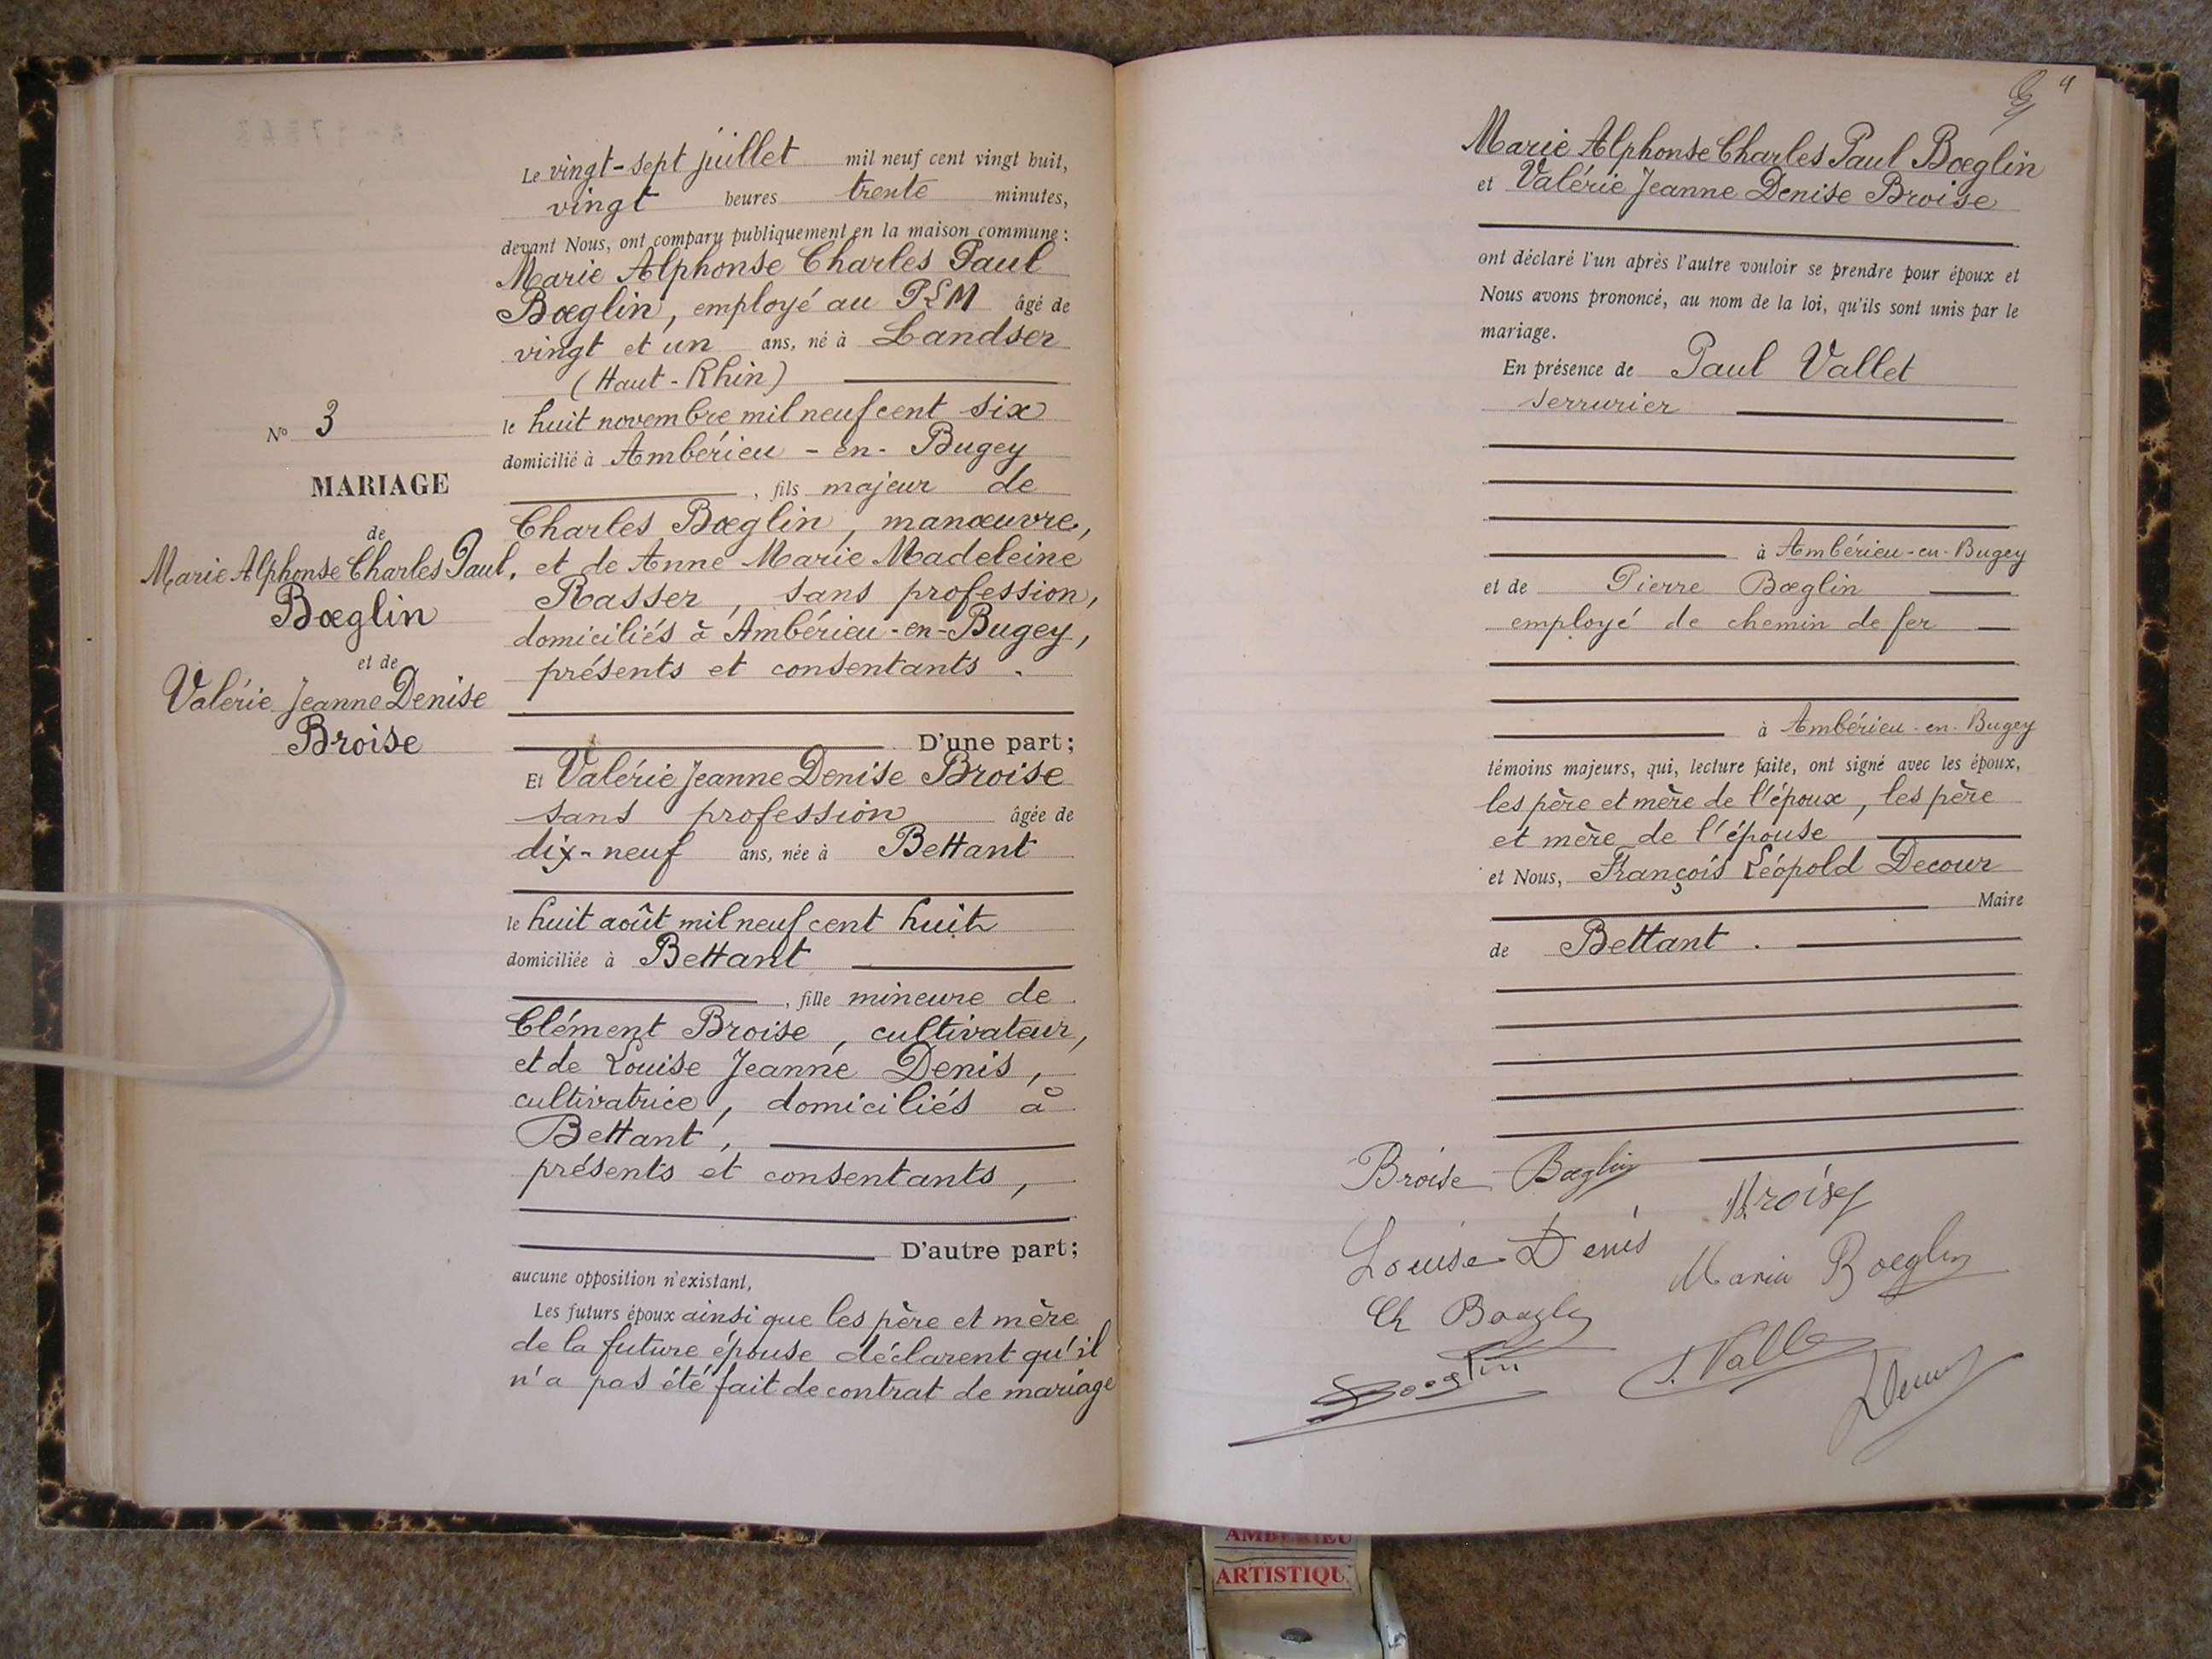 Le vingt-sept juillet mil neuf cent vingt huit,
vingt heures trente minutes,
devant Nous, ont comparu publiquement en la maison commune :
Marie Alphonse Charles Paul
Bœglin, employé au PLM âgé de
vingt et un ans, né à Landser
(Haut-Rhin)
le huit novembre mil neuf cent six
domicilié à Ambérieu-en-Bugey
, fils majeur de
Charles Bœglin, manœuvre,
et de Anne Marie Madeleine
Rasser, sans profession,
domiciliés à Ambérieu-en-Bugey,
présents et consentants.
D'une part;
Et Valérie Jeanne Denise Broise
sans profession âgée de
dix-neuf ans, née à Bettant
le huit août mil neuf cent huit
domiciliée à Bettant
, fille mineure de
Clément Broise, cultivateur,
et de Louise Jeanne Denis,
cultivatrice, domiciliés à
Bettant,
présents et consentants,
D'autre part;
aucune opposition n'existant,
Les futurs époux ainsi que les père et mère
de la future épouse déclarent qu'il
n'a pas été fait de contrat de mariage
Nº 3
MARIAGE
de
Marie Alphonse Charles Paul,
Bœglin
et de
Valérie Jeanne Denise
Broise
Marie Alphonse Charles Paul Bœglin
et Valérie Jeanne Denise Broise
ont déclaré l'un après l'autre vouloir se prendre pour époux et
Nous avons prononcé, au nom de la loi, qu'ils sont unis par le
mariage.
En présence de Paul Vallet
serrurier
à Ambérieu-en-Bugey
et de Pierre Bœglin
employé de chemin de fer
à Ambérieu-en-Bugey
témoins majeurs, qui, lecture faite, ont signé avec les époux,
les père et mère de l'époux, les père
et mère de l'épouse
et Nous, François Léopold Decour
Maire
de Bettant.
Broise Bœglin
Broise
Louise Denis
Maria Boeglin
Ch Boeglin
Boeglin
AMBERIEU
ARTISTIQU